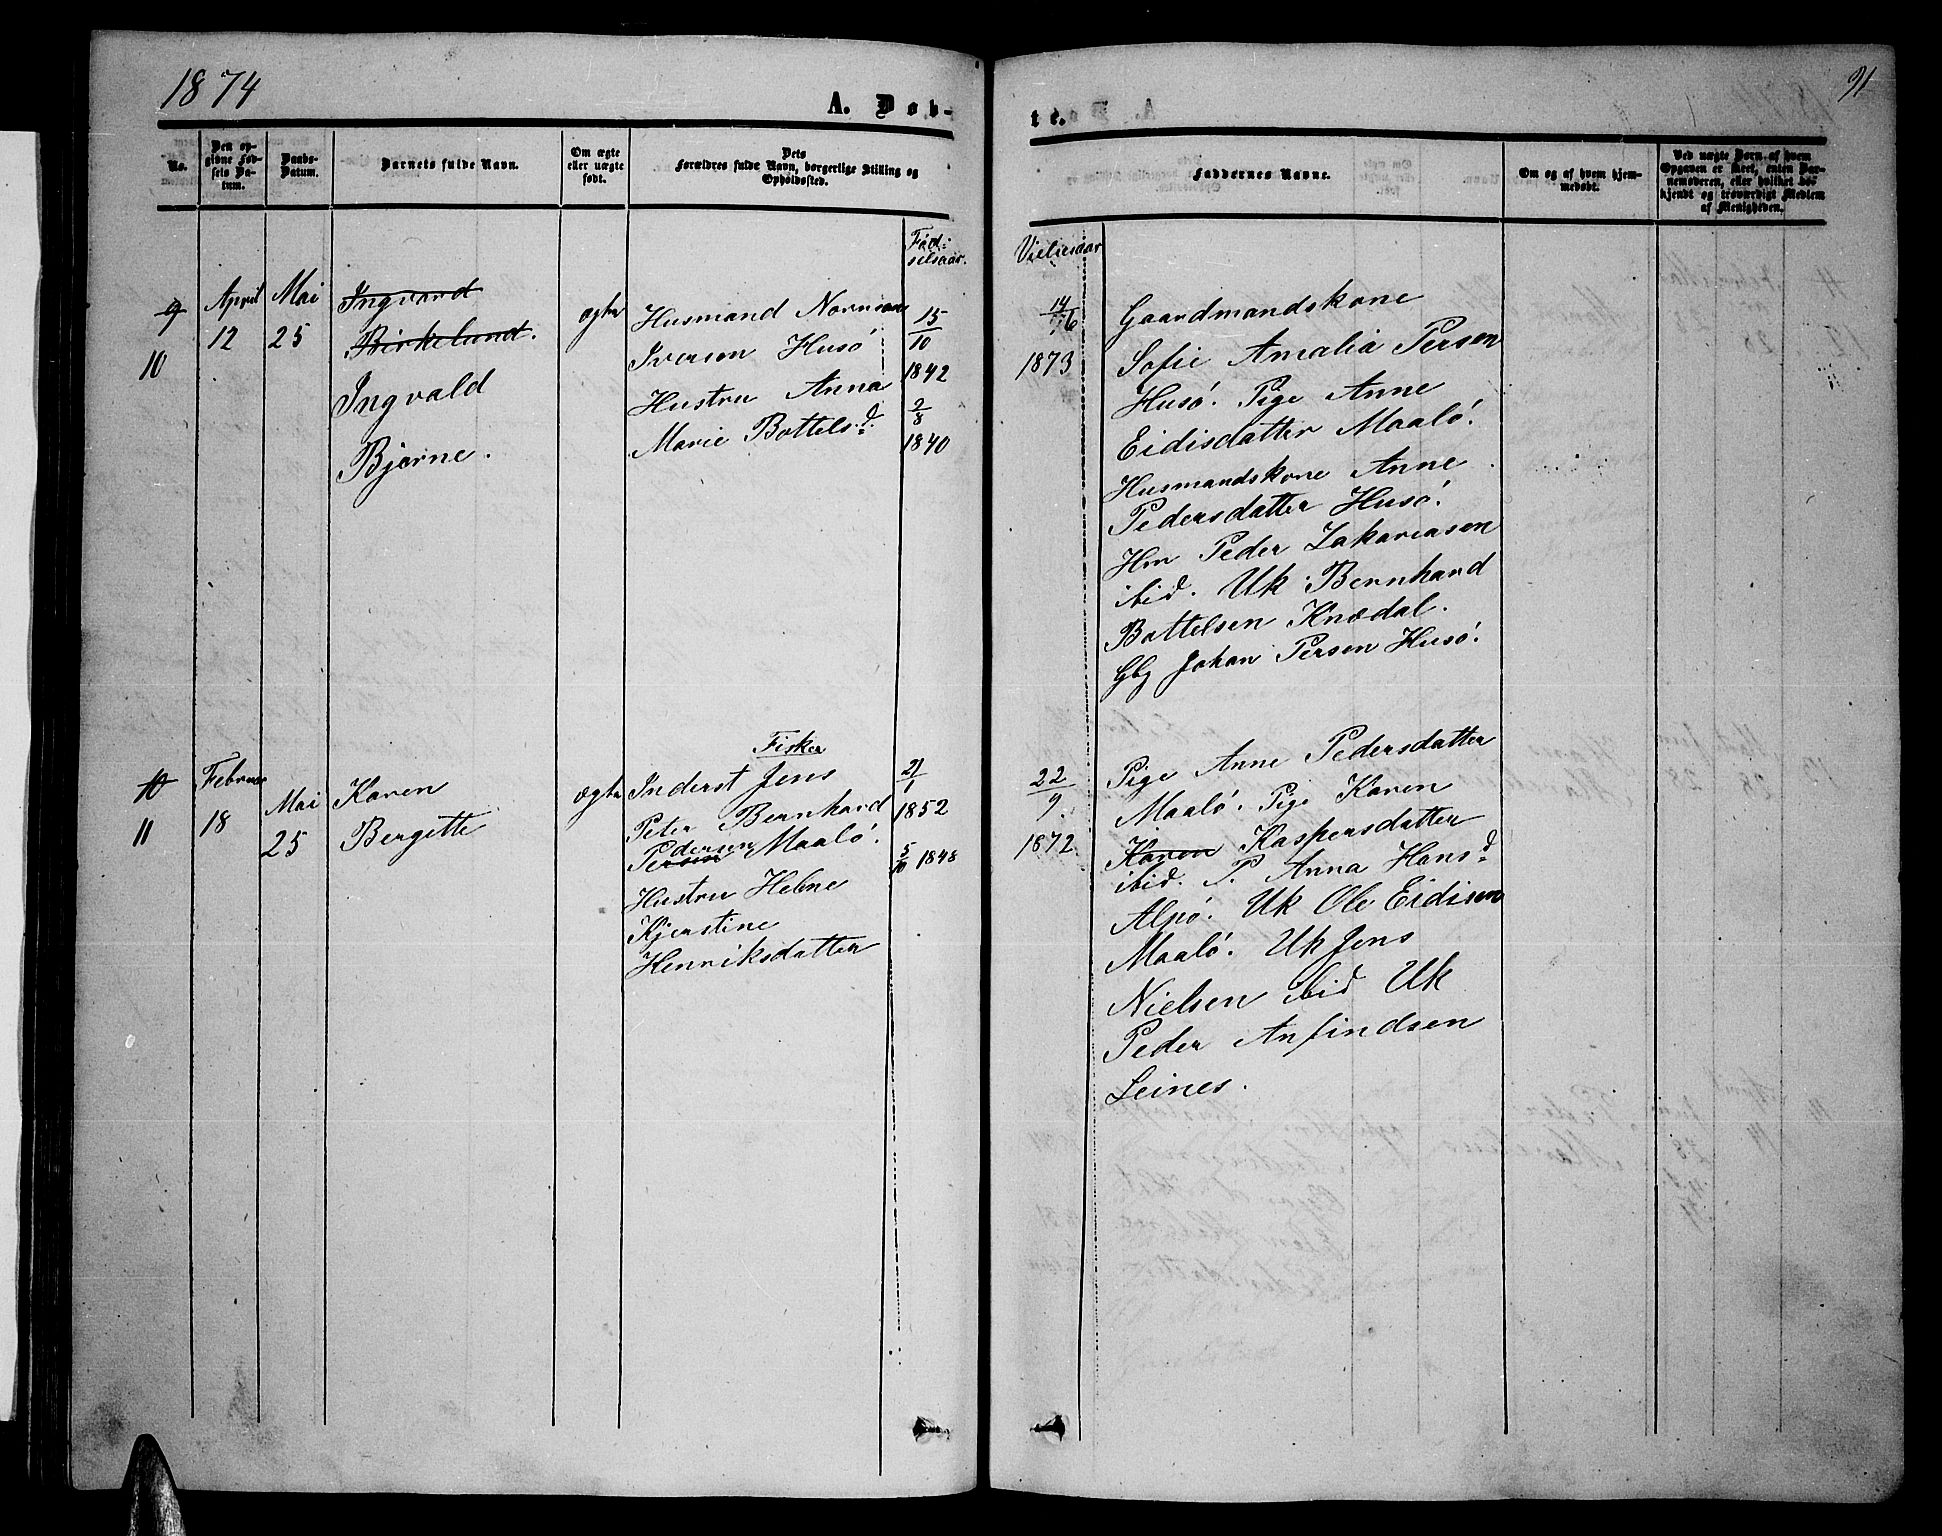 1874
A. Døb-
No.
Den opgivne Fødsels Datum.
Daabs-Datum.
Barnets fulde Navn.
Om ægte eller uægte født.
Dets Forældres fulde Navn, borgerlige Stilling og Opholdssted.
Fød-
selsaar.
9 April Mai Ingvard ægte Husmand
10 12 25 Birkelund. Iversen Husö 15/10 1842
Ingvald Hustru Anna 2/8
Bjarne. Marie Bottelsd. 1840
Fisker
10 Februar Mai Karen ægte Inderst Jens 21/1
11 18 25 Bergitte Peter Bernhard 1852
Pedersen
Persen Maalö. 5/10 1848
Hustru Helene
Kjerstine
Henriksdatter
91
te.
Faddernes Navne.
Om og af hvem hjemmedøbt.
Ved uægte Børn af hvem Opgaven er skeet, enten Barnemoderen, eller hvilket bekjendt og troværdigt Medlem af Menigheden.
Vielsesaar
14/ Gaardmandskone
1873 Sofie Amalia Persen
Husö. Pige Anne
Eidisdatter Maalö.
Husmandskone Anne
Pedersdatter Husö.
Hm Peder Zakariasen
ibid. Uk Bernhard
Bottelsen Knædal.
Gbr Johan Persen Husö.
22/9 Pige Anne Pedersdatter
Maalö. Pige Karen
1872. Karen Kaspersdatter
ibid. P. Anna Hansd.
Alsö. Uk Ole Eidisen
Maalö. Uk Jens
Nielsen ibid Uk
Peder Anfindsen
Leines.